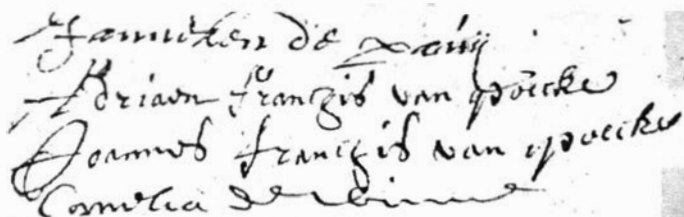 Janniken de pauw
Adriaen franchois van poecke
Joannes franchois van poecke
Cornelia de winne